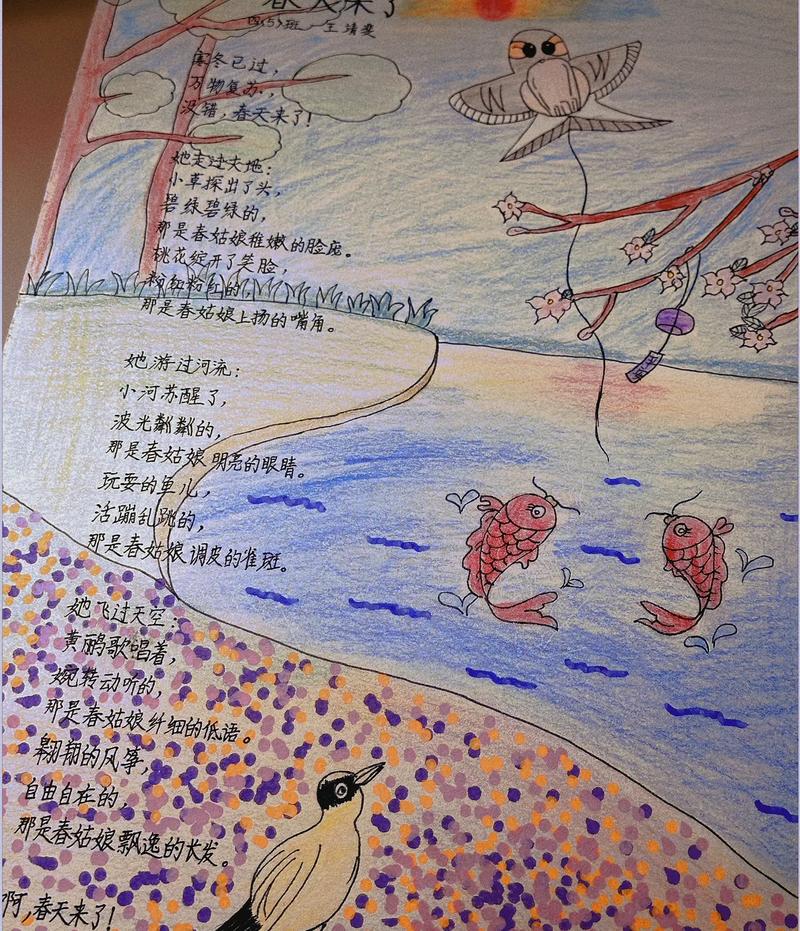 春天来了
四(5)班 王婧斐
寒冬已过，
万物复苏，
没错，春天来了！
她走过大地：
小草探出了头，
碧绿碧绿的，
那是春姑娘稚嫩的脸庞。
桃花绽开了笑脸，
粉红粉红的，
那是春姑娘上扬的嘴角。
她游过河流：
小河苏醒了，
波光粼粼的，
那是春姑娘明亮的眼睛。
玩耍的鱼儿，
活蹦乱跳的，
那是春姑娘调皮的雀斑。
她飞过天空：
黄鹂歌唱着，
婉转动听的，
那是春姑娘纤细的低语。
翱翔的风筝，
自由自在的，
那是春姑娘飘逸的长发。
啊，春天来了！